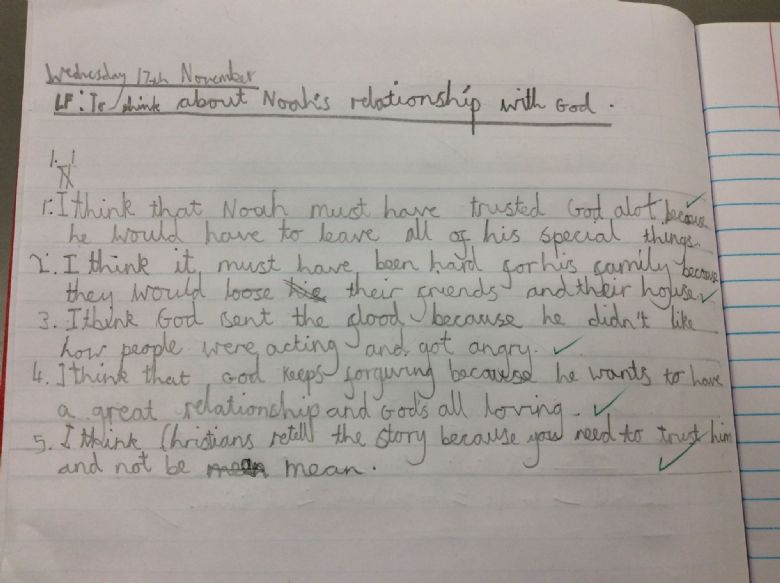 Wednesday 17th November
LP: To think about Noah's relationship with God.
1. I think that Noah must have trusted God alot because
he would have to leave all of his special things.
2. I think it must have been hard for his family because
they would loose their friends and their house.
3. I think God sent the flood because he didn't like
how people were acting and got angry.
4. I think that God keeps forgiving because he wants to have
a great relationship and God's all loving.
5. I think Christians retell the story because you need to trust him
and not be mean.